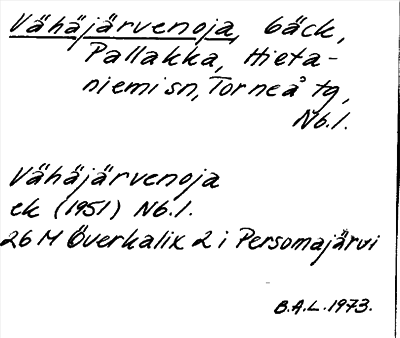 Vähäjärvenoja, bäck,
Pallakka, Hieta-
niemi sn, Torneå tg,
Nb.l.
Vähäjärvenoja
ek (1951) Nb.l.
26 M Överkalix 2 i Persomajärvi
B.A.L. 1973.